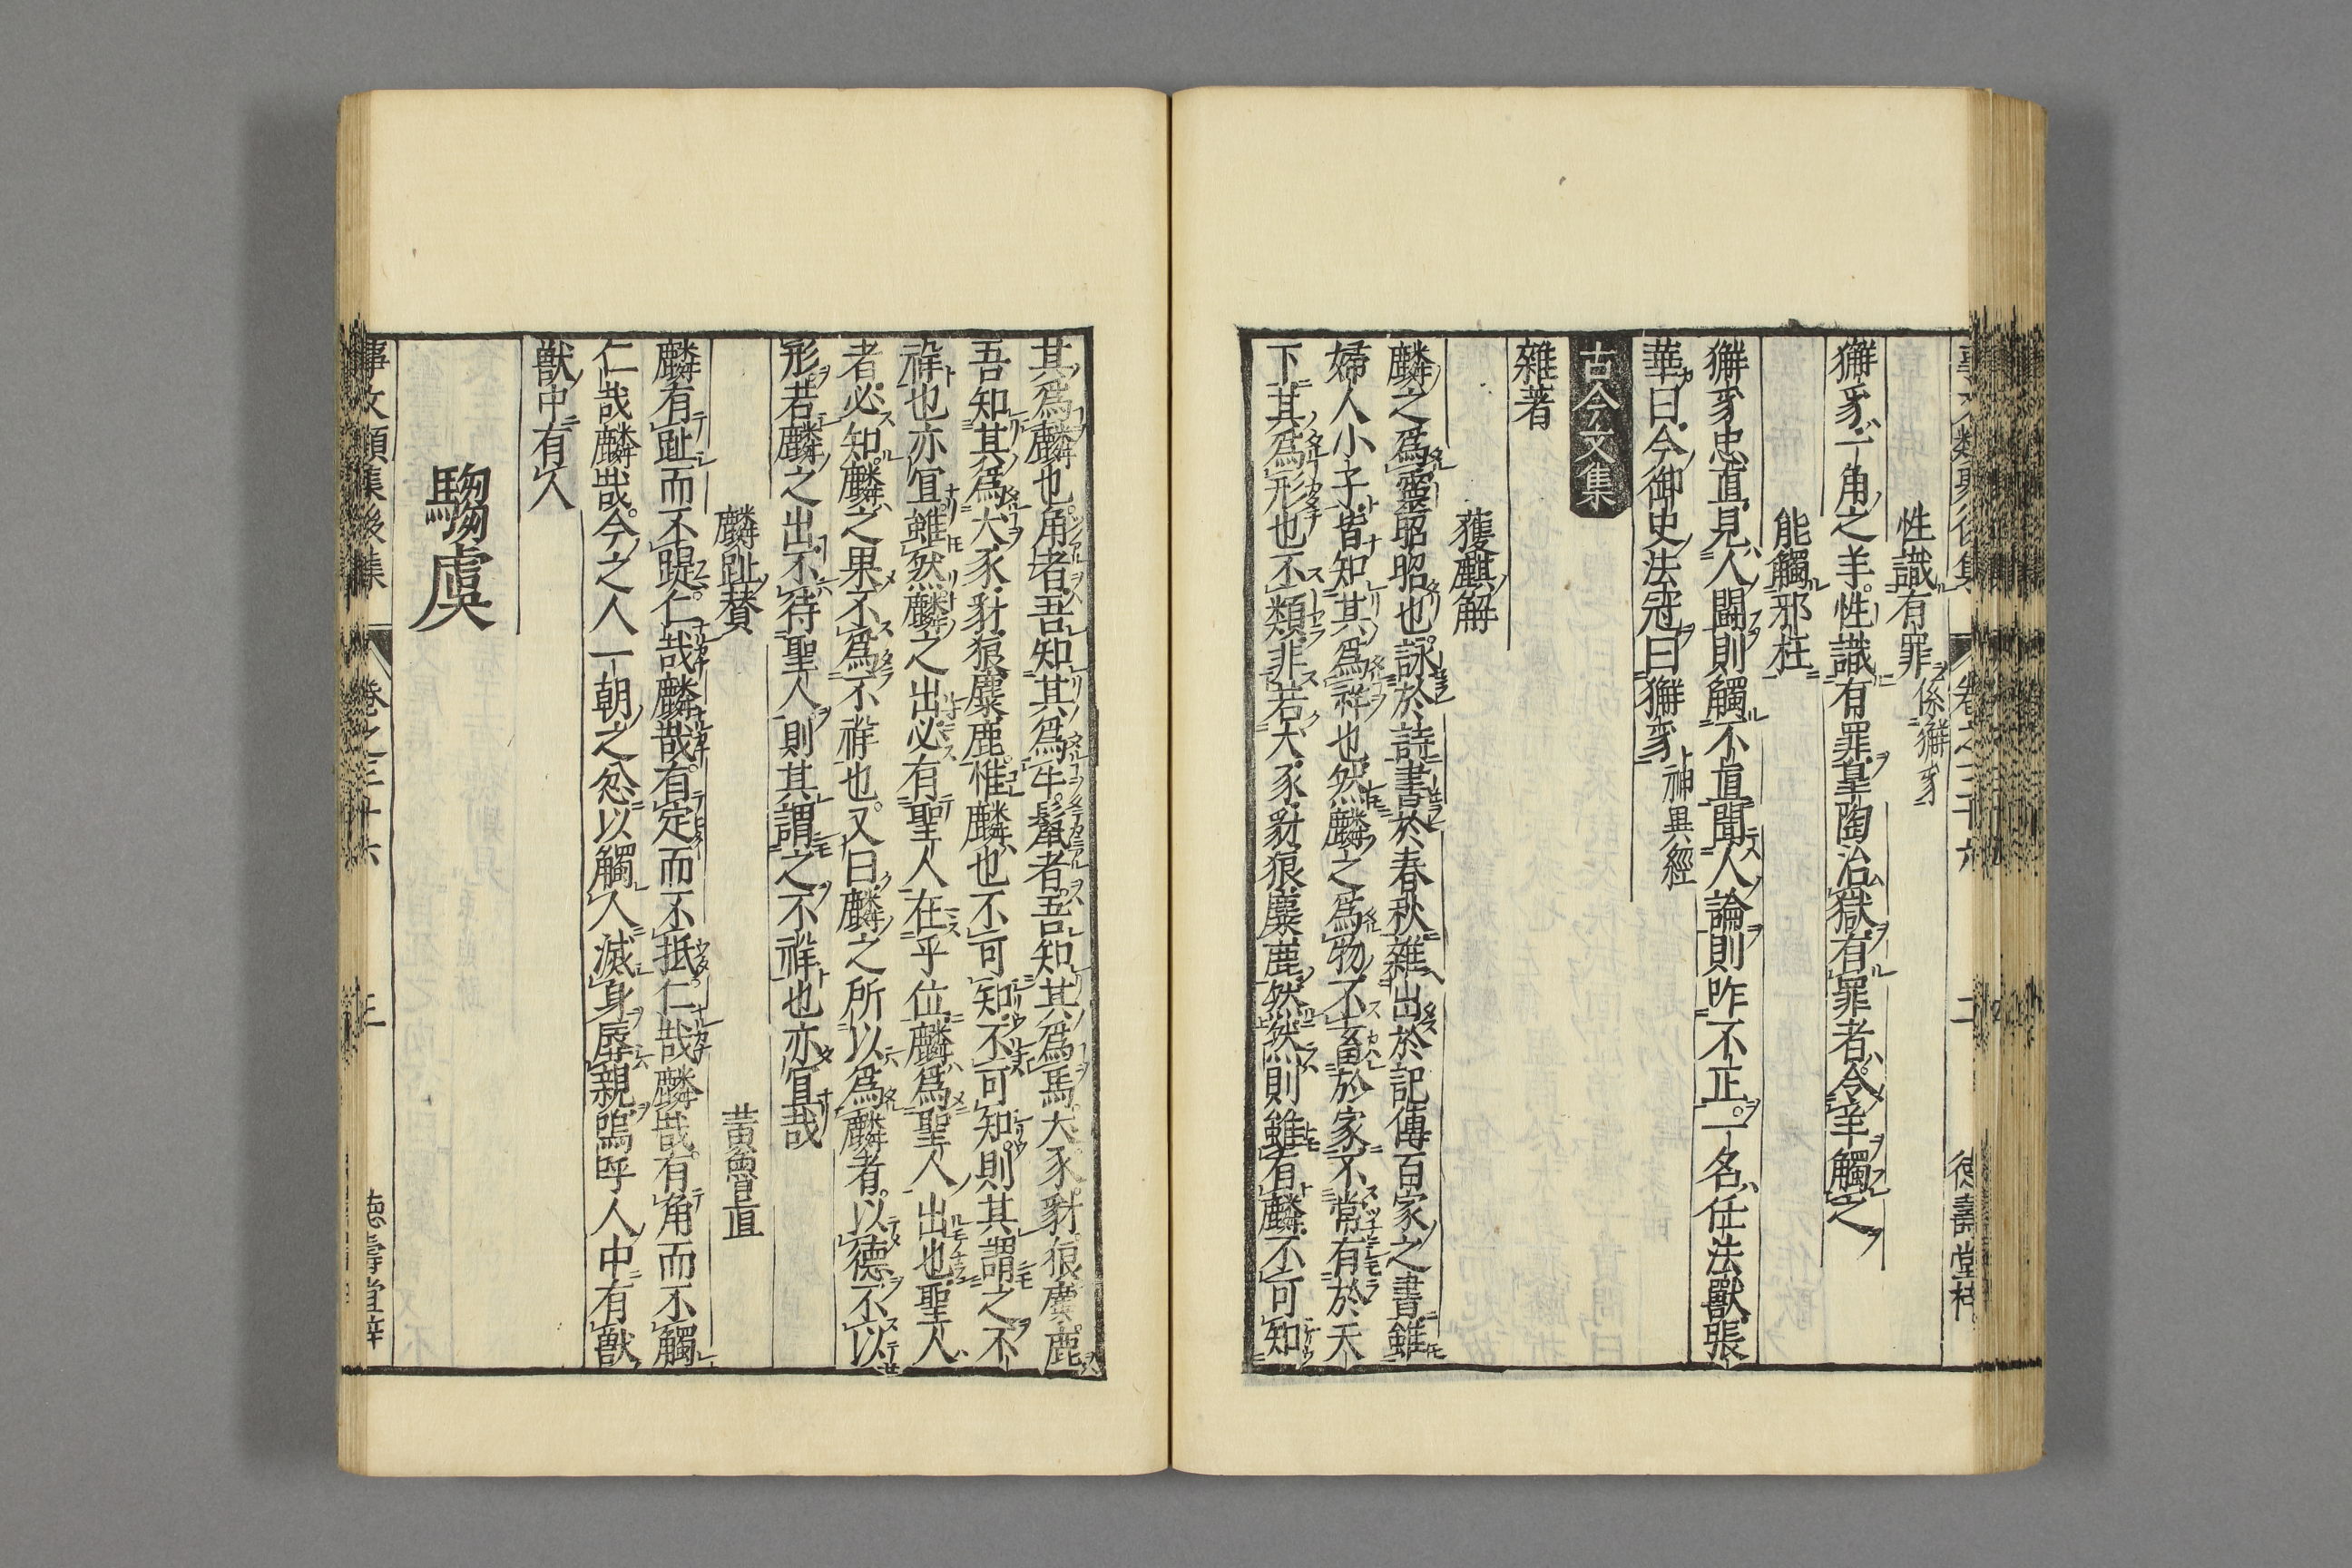 性識有罪係獬豸
獬豸一角之羊性識有罪皐陶治獄有罪者令羊觸之
能觸邪枉
獬豸忠直見人鬪則觸不直聞人論則咋不正一名任法獸張
華曰今御史法冠曰獬豸神異經
古今文集
雜著
獲麒解
麟之爲靈昭昭也詠於詩書於春秋雜出於記傳百家之書雖
婦人小子皆知其爲祥也然麟之爲物不畜於家不常有於天
下其爲形也不類非若犬豕豺狼麋鹿然然則雖有麟不可知
其爲麟也角者吾知其爲牛鬛者吾知其爲馬犬豕豺狼麋鹿
吾知其爲犬豕豺狼麋鹿惟麟也不可知不可知則其謂之不
祥也亦宜雖然麟之出必有聖人在乎位麟爲聖人出也聖人
者必知麟麟之果不爲不祥也又曰麟之所以爲麟者以德不以
形若麟之出不待聖人則其謂之不祥也亦宜哉
麟趾賛　黃魯直
麟有趾而不踶仁哉麟哉有定而不抵仁哉麟哉有角而不觸
仁哉麟哉今之人一朝之忿以觸人滅身辱親嗚呼人中有獸
獸中有人
騶虞
事文類集後集　卷之三十六　三　德壽堂梓